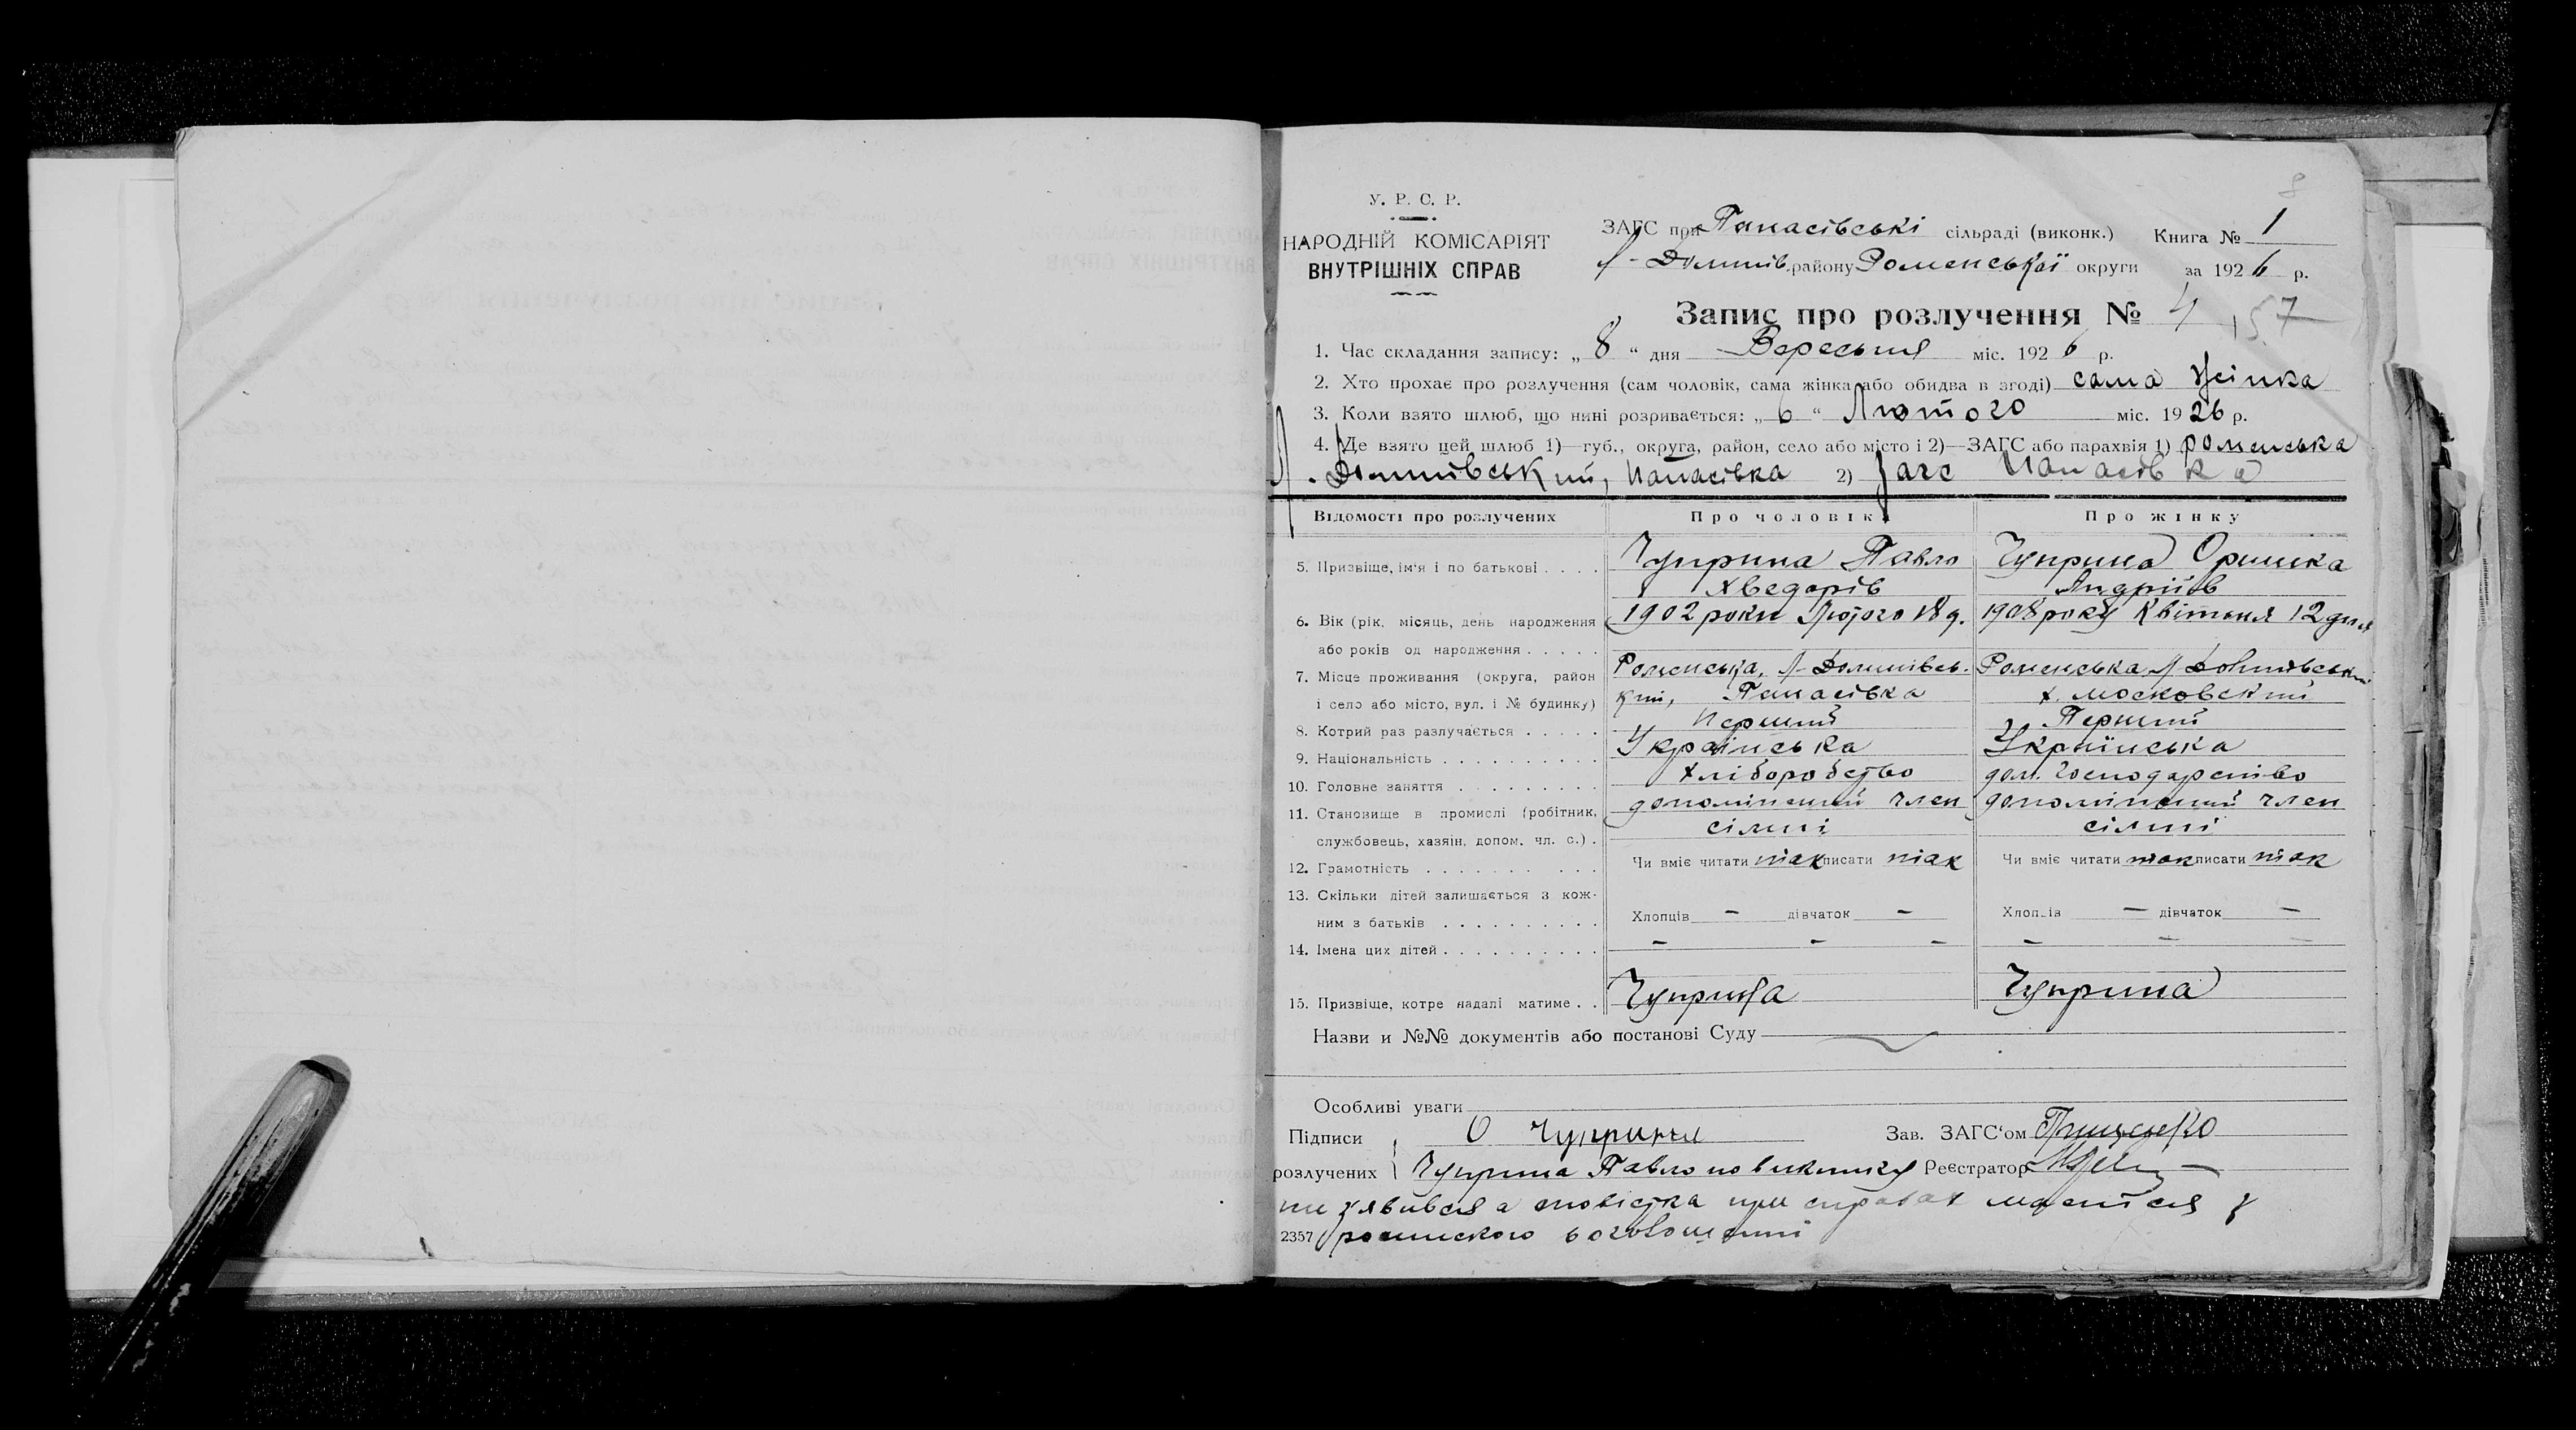 8
У. Р. С. Р.
НАРОДНІЙ КОМІСАРІЯТ
ВНУТРІШНІХ СПРАВ
ЗАГС при Панасівські сільраді (виконк.) Книга № 1
Л-Долинів. району Роменської округи за 1926 р.
Запис про розлучення № 4 157
1. Час складання запису: „ 8 “ дня Вересьня міс. 1926 р.
2. Хто прохає про розлучення (сам чоловік, сама жінка або обидва в згоді) сама жінка
3. Коли взято шлюб, що нині розривається: „ 6 “ Лютого міс. 1926 р.
4. Де взято цей шлюб 1)—губ., округа, район, село або місто і 2)—ЗАГС або парахвія 1) роменська
Л. Долинівський, Панасівка 2) Загс Панасівка
Відомості про розлучених Про чоловіка Про жінку
5. Призвіще, ім'я і по батькові . . . . Чуприна Павло Чуприна Оришка
Хведорів Андріїв
6. Вік (рік, місяць, день народження 1902 роки Лютого 18 д. 1908 року Квітеня 12 дня
або років од народження . . . . .
7. Місце проживання (округа, район Роменська, Л-Долинівсь- Роменська Л-Долинівський
і село або місто, вул. і № будинку) кий, Панасівка х. московский
8. Котрий раз разлучається . . . . . Перший Перший
9. Національність . . . . . . . . . . Українська Українська
10. Головне заняття . . . . . . . . . хліборобство дом. господарство
11. Становище в промислі (робітник, допоміжний член допоміжний член
службовець, хазяін, допом. чл. с.) . сімні сімні
12. Грамотність . . . . . . . . . . Чи вміє читати так писати так Чи вміє читати так писати так
13. Скільки дітей залишається з кож-
ним з батьків . . . . . . . . . . Хлопців — дівчаток — Хлопців — дівчаток —
14. Імена цих дітей . . . . . . . . . . - - - - - -
15. Призвіще, котре надалі матиме . . Чуприна Чуприна
Назви и №№ документів або постанові Суду
Особливі уваги
Підписи О Чуприна Зав. ЗАГС'ом
розлучених Чуприна Павло по виклику Реєстратор
ни зявився а повістка при справах маеться у
2357